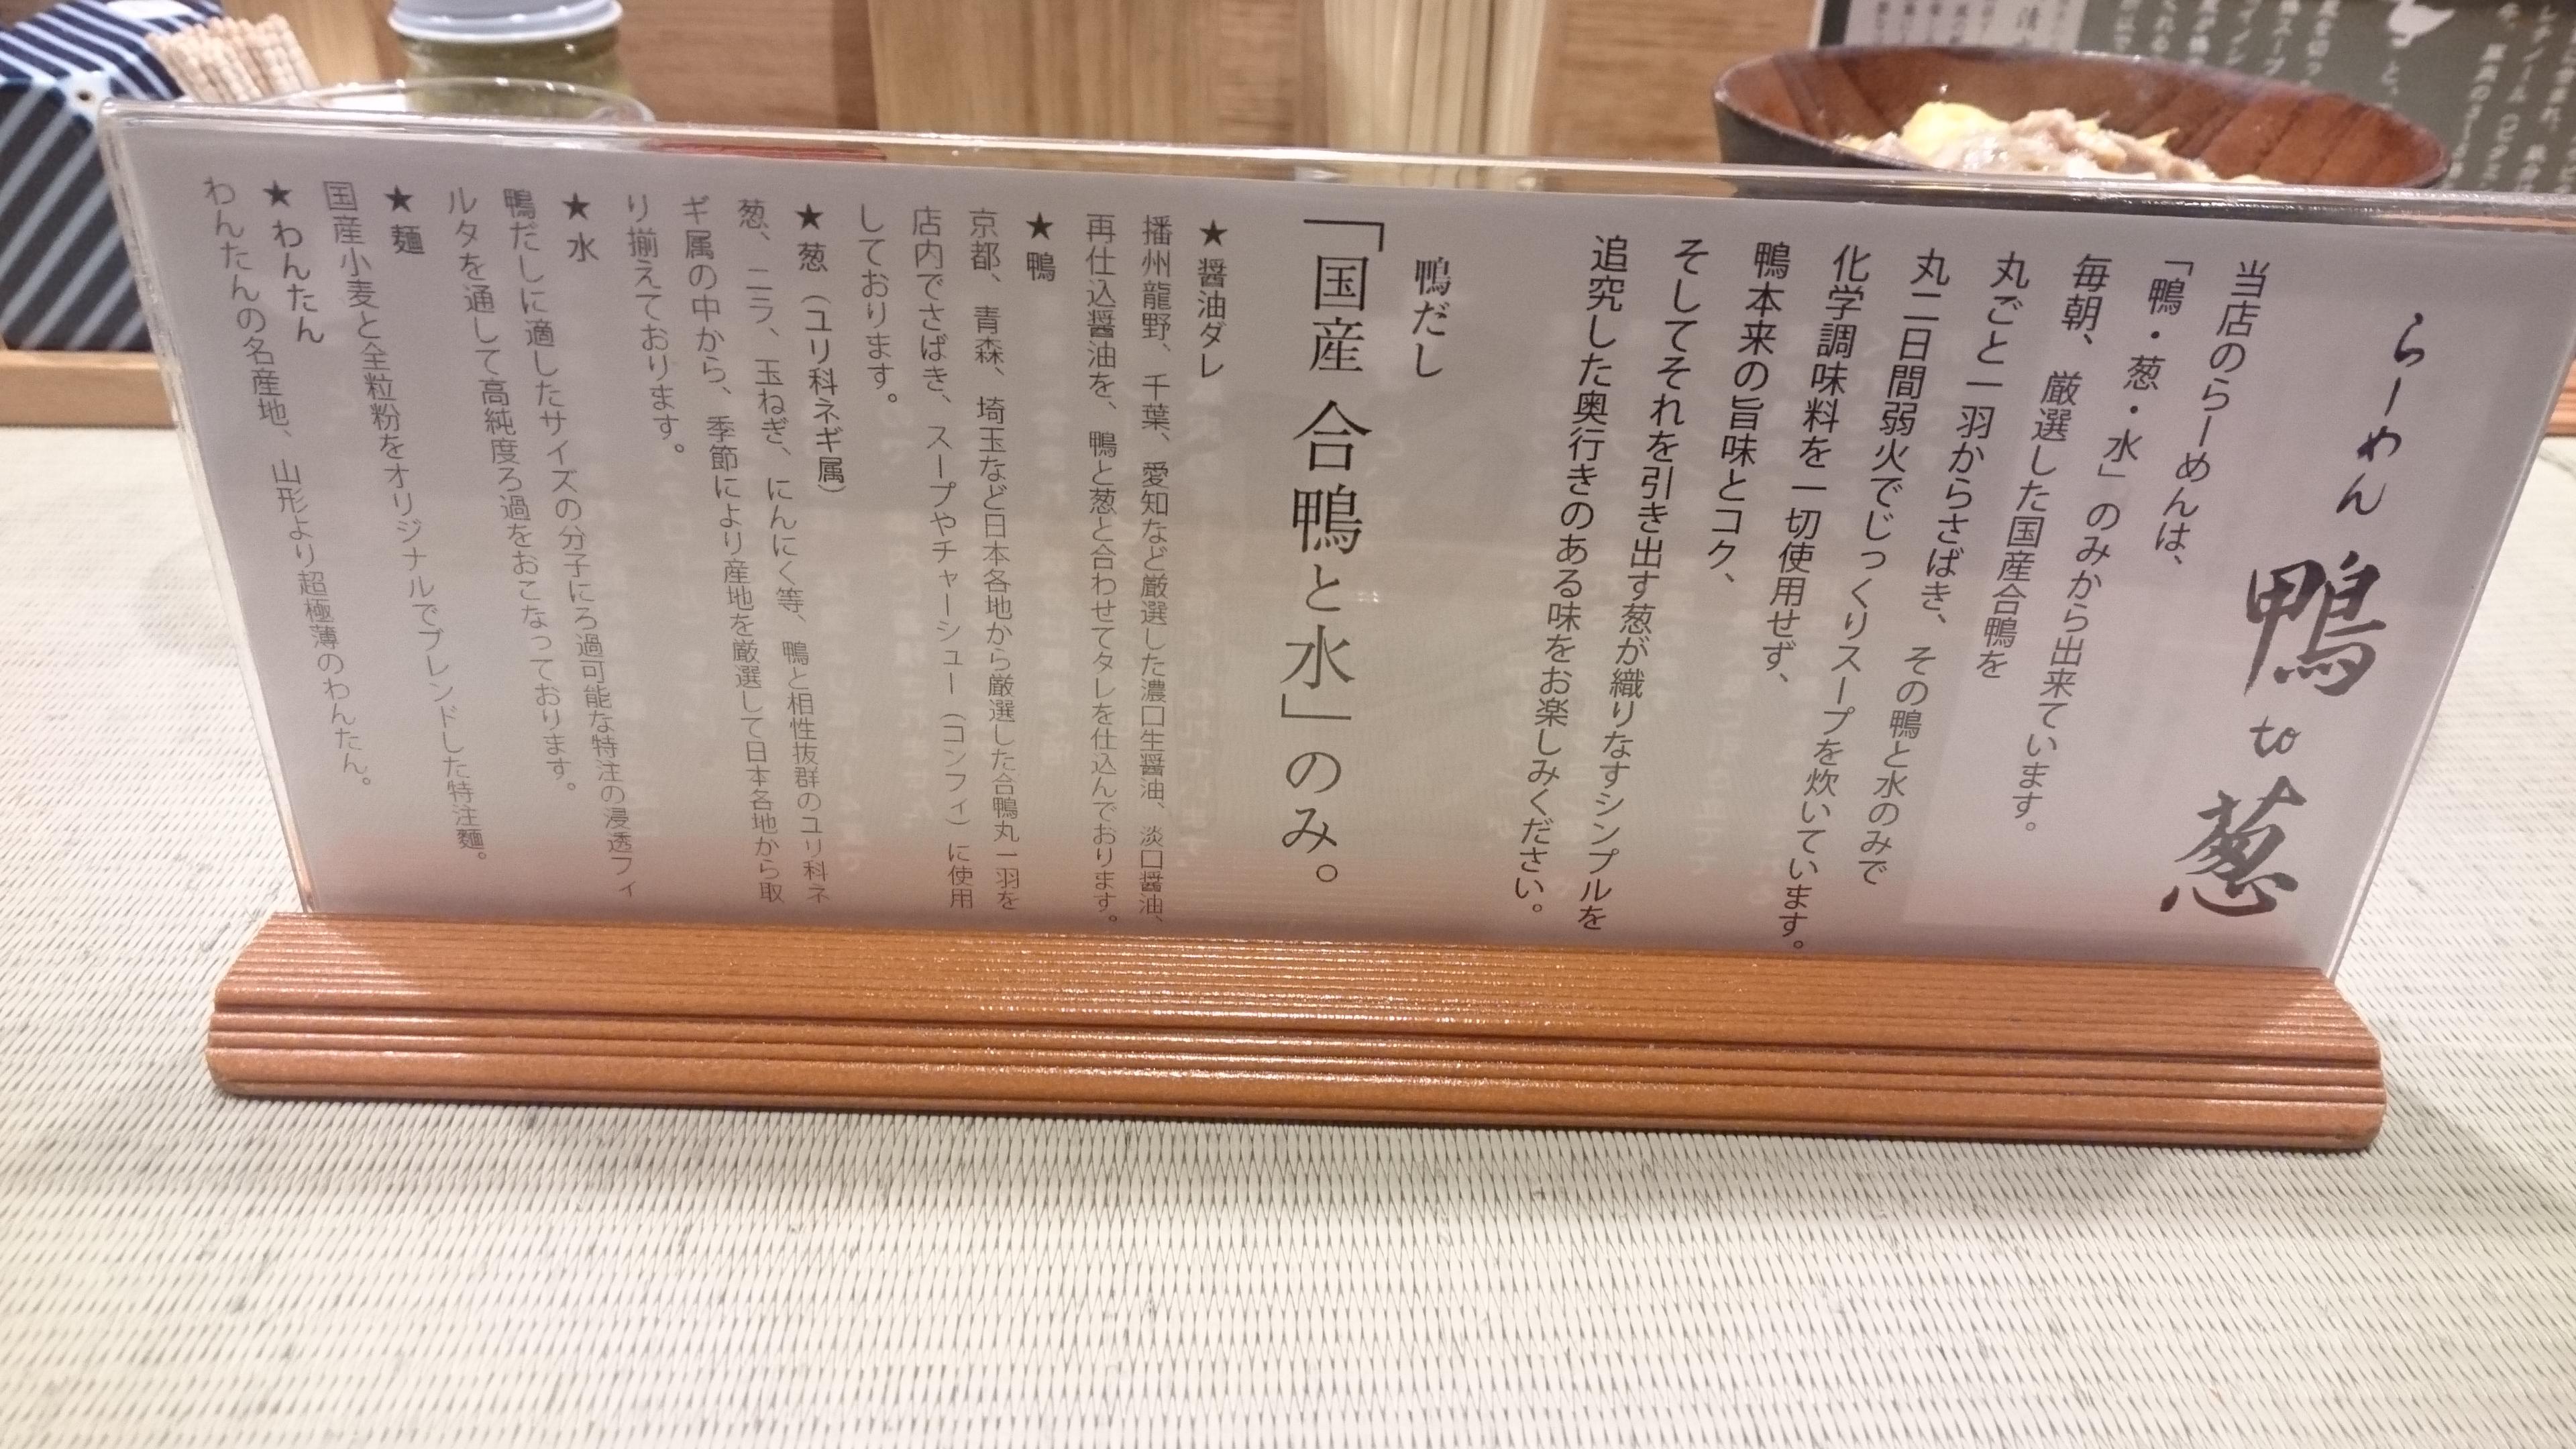 らーめん 鴨 to 葱
当店のらーめんは、
「鴨・葱・水」のみから出来ています。
毎朝、厳選した国産合鴨を
丸ごと一羽からさばき、その鴨と水のみで
丸二日間弱火でじっくりスープを炊いています。
化学調味料を一切使用せず、
鴨本来の旨味とコク、
そしてそれを引き出す葱が織りなすシンプルを
追究した奥行きのある味をお楽しみください。
鴨だし
「国産 合鴨と水」のみ。
★醤油ダレ
播州龍野、千葉、愛知など厳選した濃口生醤油、淡口醤油、
再仕込醤油を、鴨と葱と合わせてタレを仕込んでおります。
★鴨
京都、青森、埼玉など日本各地から厳選した合鴨丸一羽を
店内でさばき、スープやチャーシュー（コンフィ）に使用
しております。
★葱（ユリ科ネギ属）
葱、ニラ、玉ねぎ、にんにく等、鴨と相性抜群のユリ科ネ
ギ属の中から、季節により産地を厳選して日本各地から取
り揃えております。
★水
鴨だしに適したサイズの分子にろ過可能な特注の浸透フィ
ルタを通して高純度ろ過をおこなっております。
★麺
国産小麦と全粒粉をオリジナルでブレンドした特注麺。
★わんたん
わんたんの名産地、山形より超極薄のわんたん。